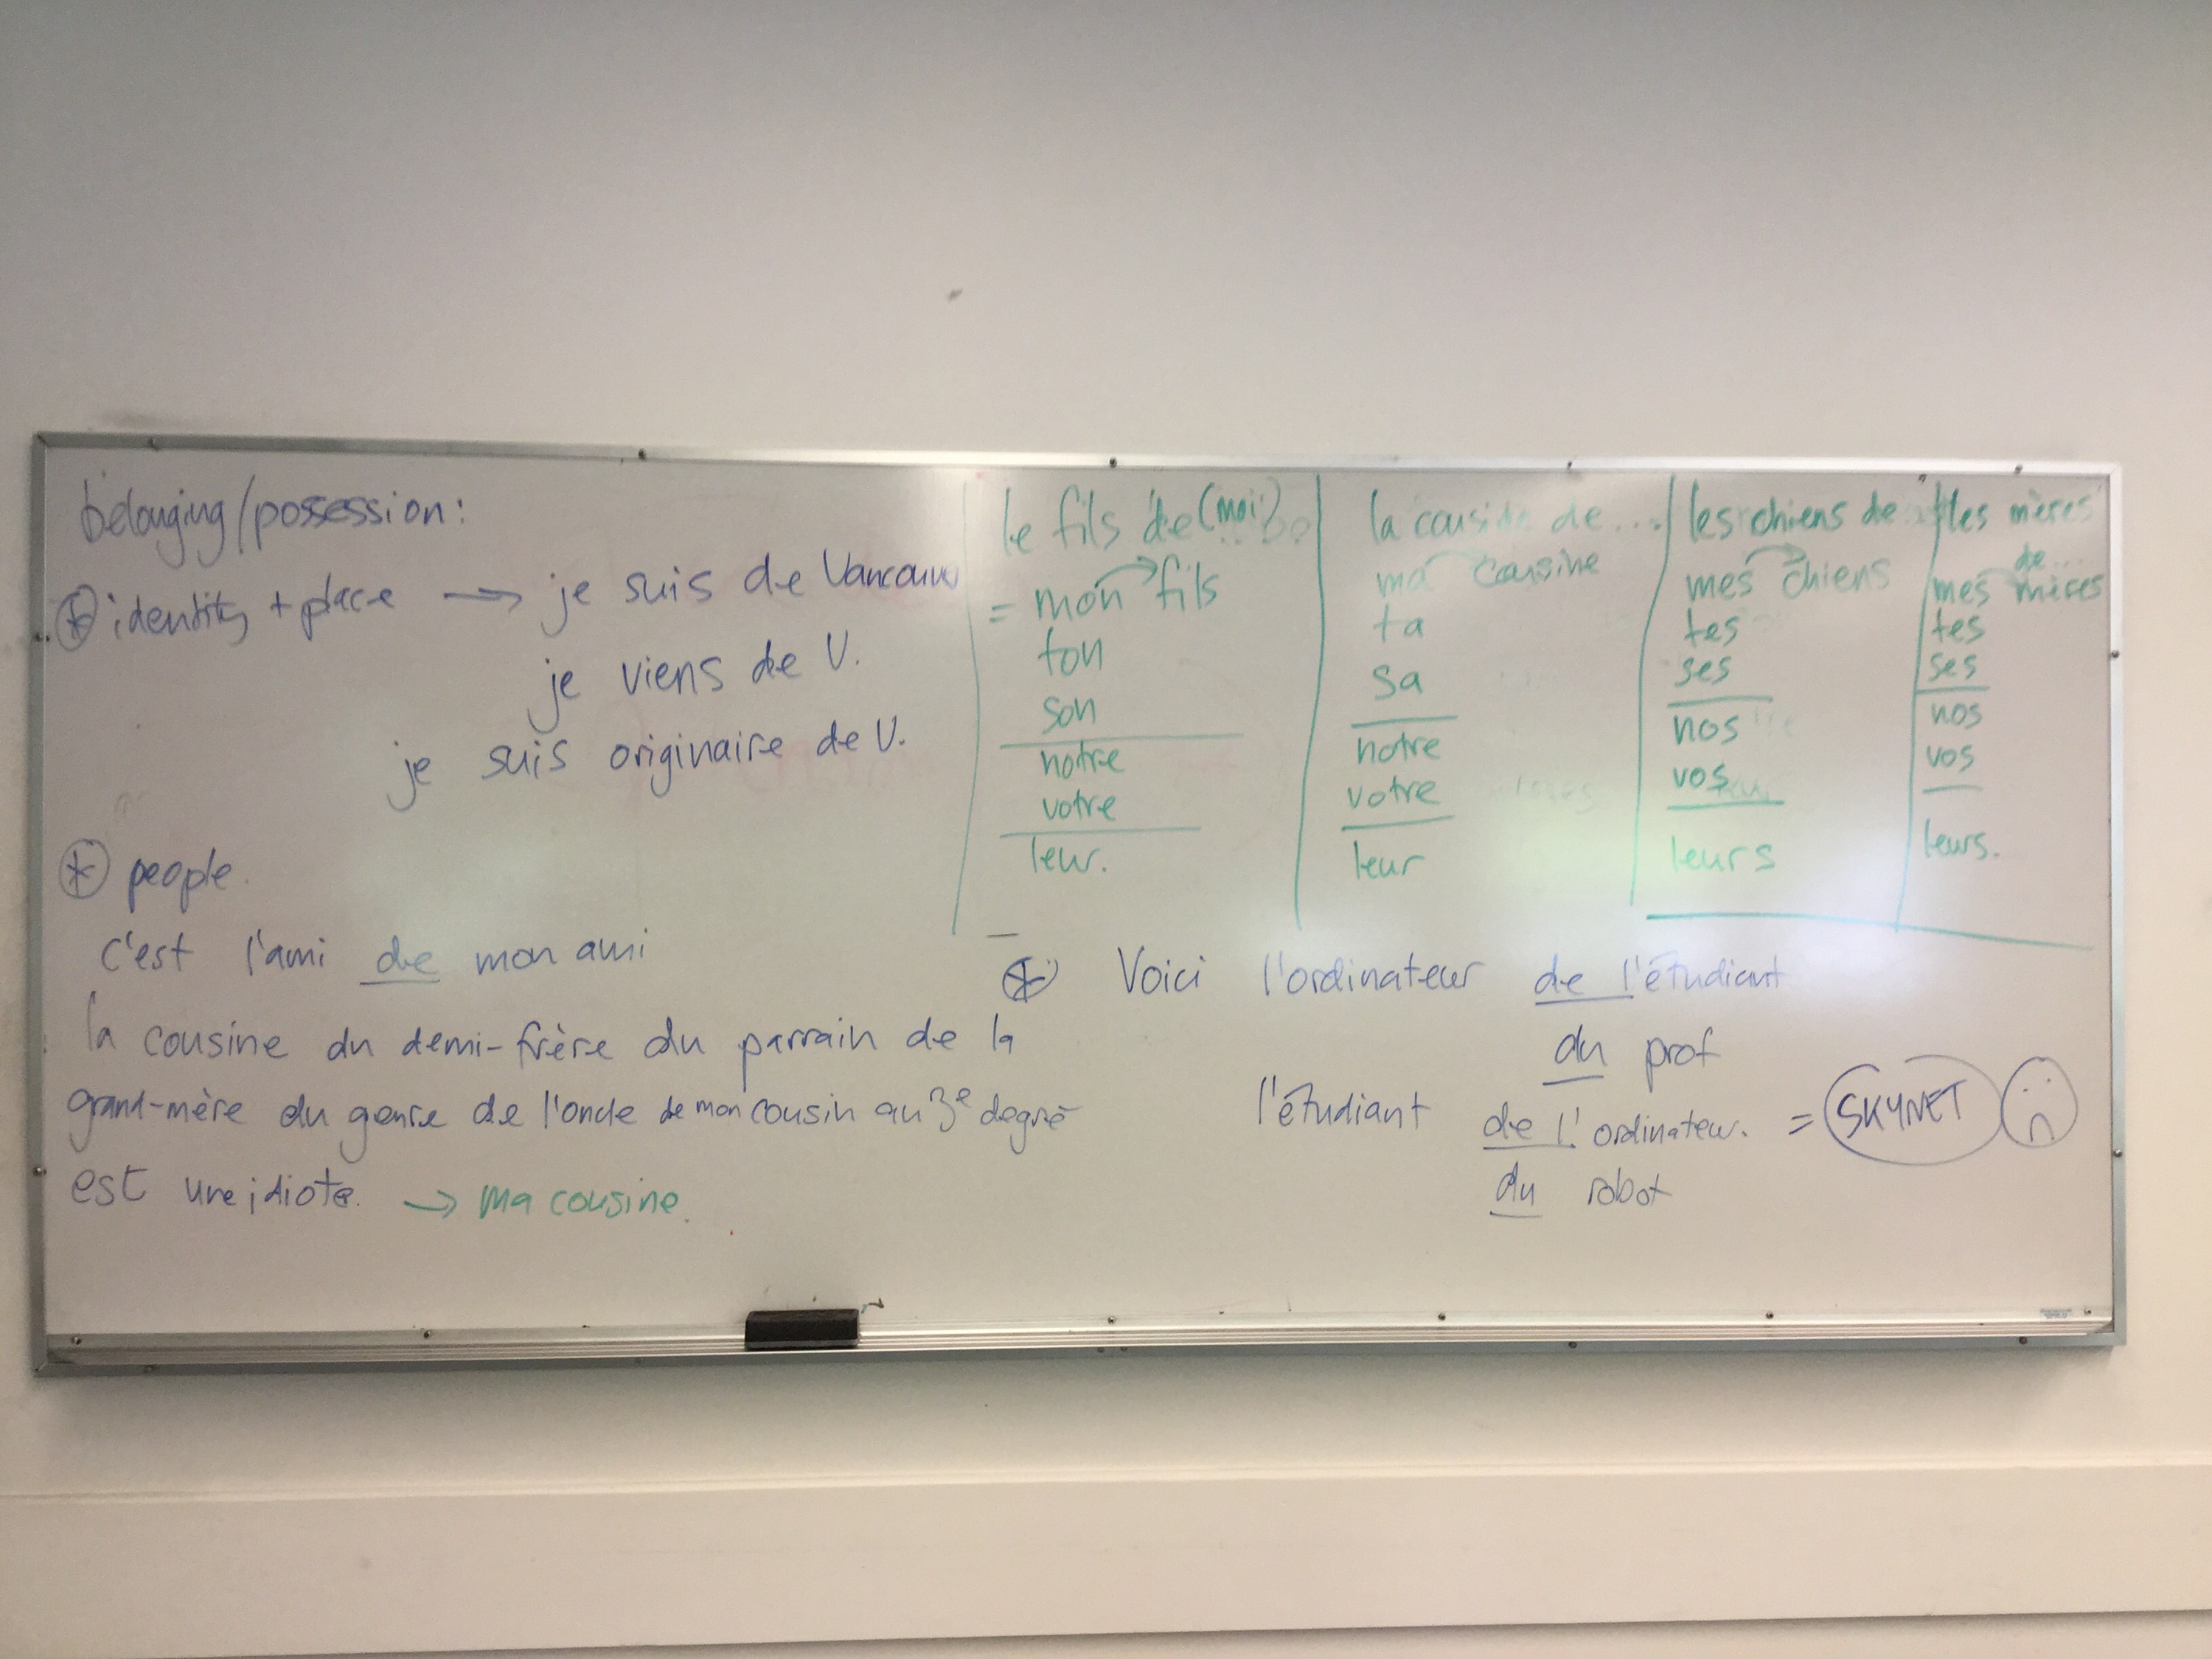 belonging/possession:
* identity + place → je suis de Vancouver
je viens de V.
je suis originaire de V.
* people.
c'est l'ami de mon ami
la cousine du demi-frère du parrain de la
grand-mère du genre de l'oncle de mon cousin au 3e degré
est une idiote. → ma cousine.
le fils de (moi)
= mon fils
ton
son
notre
votre
leur.
la cousine de...
ma cousine
ta
sa
notre
votre
leur
les chiens de
mes chiens
tes
ses
nos
vos
leurs
les mères
de...
mes mères
tes
ses
nos
vos
leurs.
* Voici l'ordinateur de l'étudiant
du prof
l'étudiant de l'ordinateur. = SKYNET
du robot